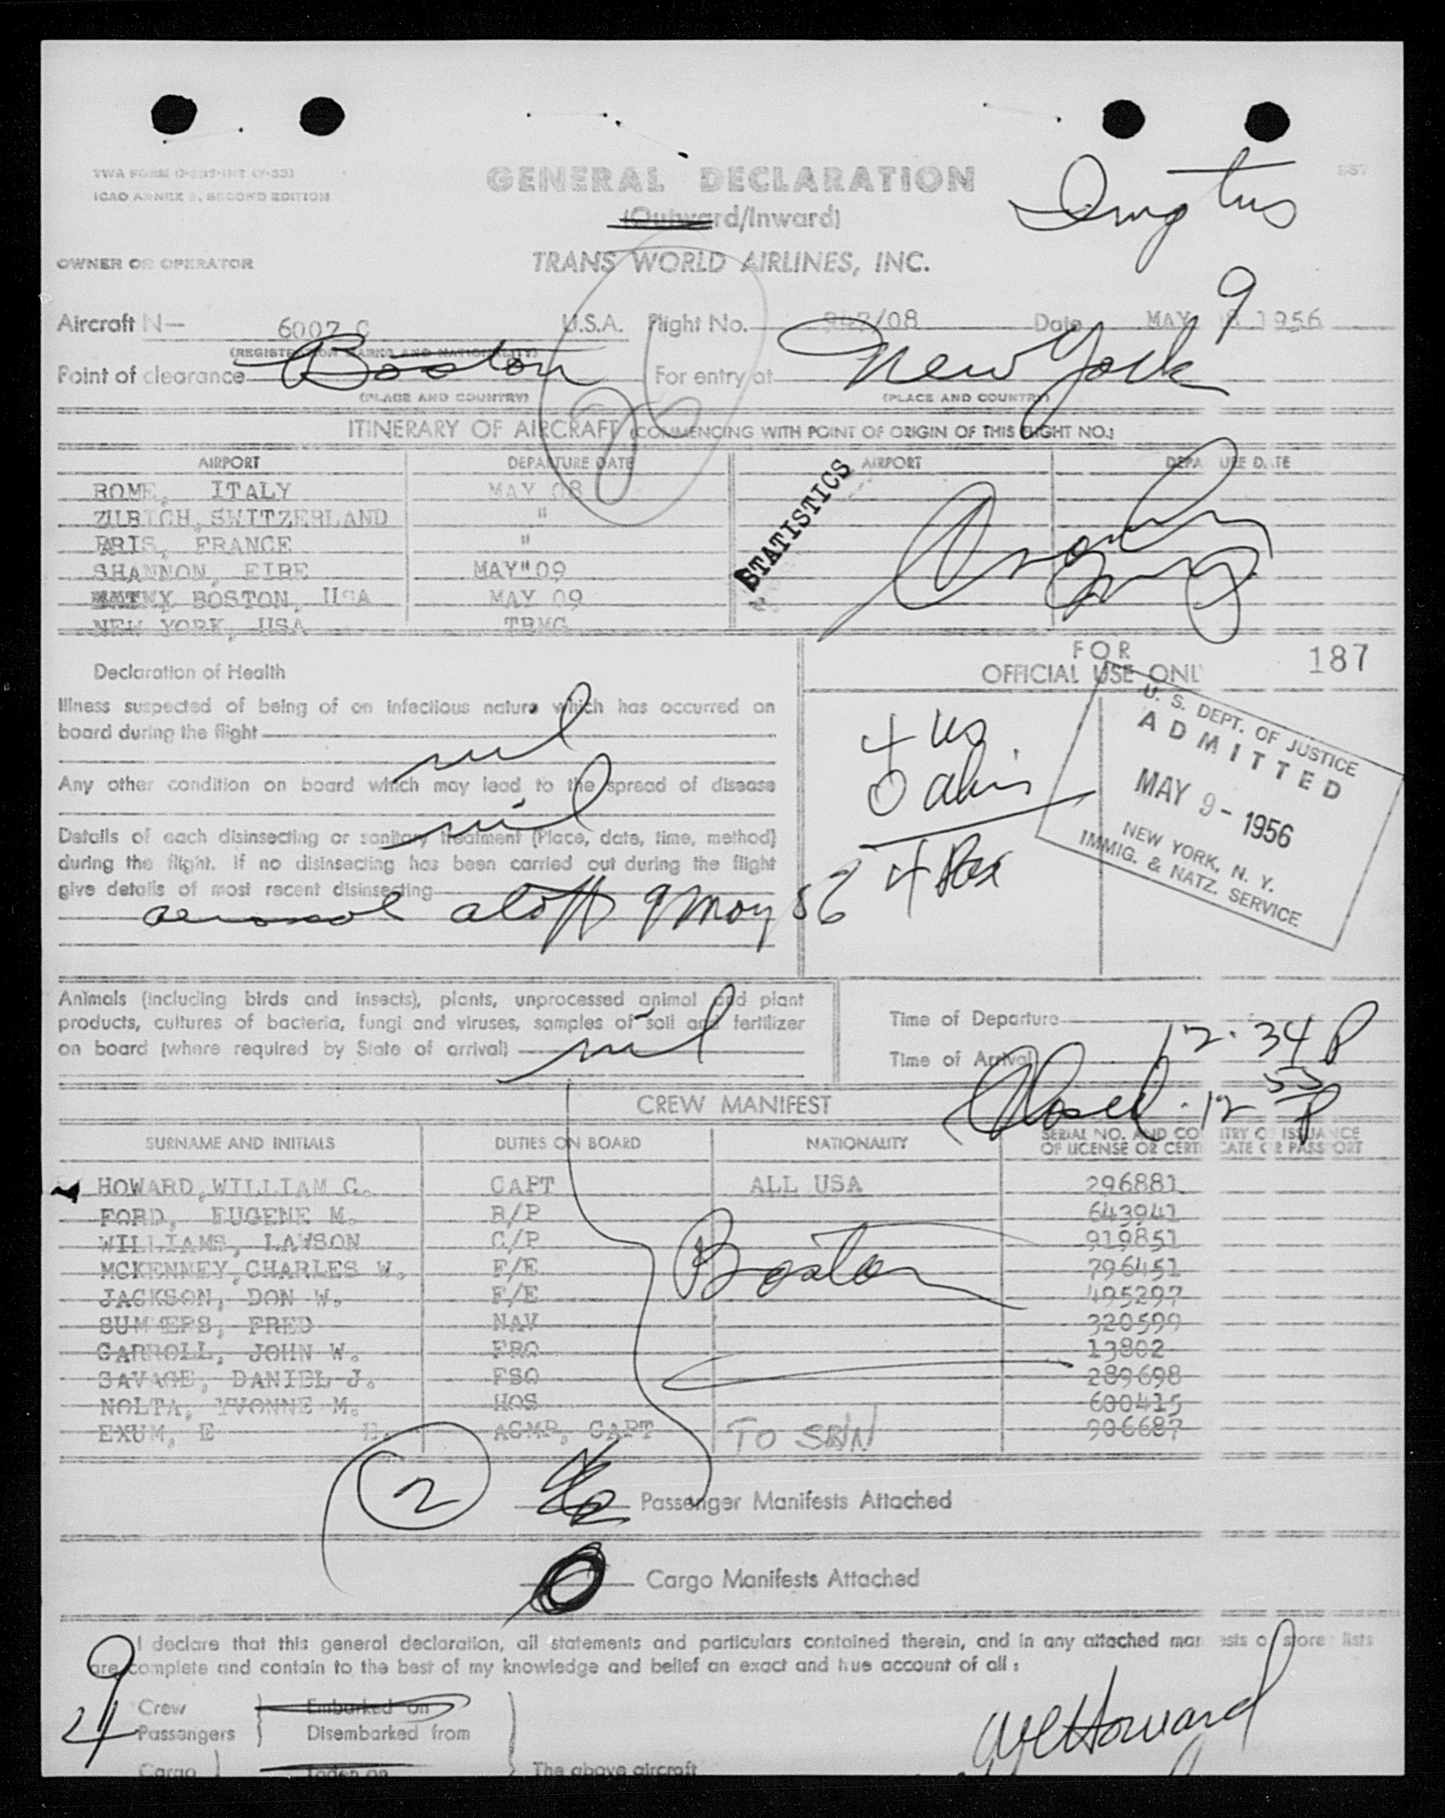 TWA FORM
ICAO ANNEX 9, SECOND EDITION
GENERAL DECLARATION
(Outward/Inward)
OWNER OR OPERATOR
TRANS WORLD AIRLINES, INC.
Aircraft N— 6007 C U.S.A. Flight No. /08 Date MAY 9 1956
(REGISTRATION MARKS AND NATIONALITY)
Point of clearance Boston For entry at New York
(PLACE AND COUNTRY) (PLACE AND COUNTRY)
ITINERARY OF AIRCRAFT (COMMENCING WITH POINT OF ORIGIN OF THIS FLIGHT NO.)
AIRPORT DEPARTURE DATE AIRPORT DEPARTURE DATE
ROME, ITALY MAY 08
ZURICH, SWITZERLAND "
PARIS, FRANCE "
SHANNON, EIRE MAY 09
BOSTON, USA MAY 09
NEW YORK, USA TRMG
STATISTICS
Declaration of Health
FOR
OFFICIAL USE ONLY
187
Illness suspected of being of an infectious nature which has occurred on
board during the flight
nil
Any other condition on board which may lead to the spread of disease
nil
Details of each disinsecting or sanitary treatment (Place, date, time, method)
during the flight. If no disinsecting has been carried out during the flight
give details of most recent disinsecting
aerosol aloft 9 May 56
4 US
0 alien
4 Pax
U. S. DEPT. OF JUSTICE
ADMITTED
MAY 9 - 1956
NEW YORK, N. Y.
IMMIG. & NATZ. SERVICE
Animals (including birds and insects), plants, unprocessed animal and plant
products, cultures of bacteria, fungi and viruses, samples of soil and fertilizer
on board (where required by State of arrival)
nil
Time of Departure
Time of Arrival 12.34 P
Closed. 12 55 P
CREW MANIFEST
SURNAME AND INITIALS DUTIES ON BOARD NATIONALITY SERIAL NO. AND COUNTRY OF ISSUANCE
OF LICENSE OR CERTIFICATE OR PASSPORT
HOWARD, WILLIAM C. CAPT ALL USA 296881
FORD, EUGENE M. R/P 643941
WILLIAMS, LAWSON C/P 919851
MCKENNEY, CHARLES W. F/E 796451
JACKSON, DON W. F/E 495297
SUMMERS, FRED NAV 320599
CARROLL, JOHN W. FRO 13802
SAVAGE, DANIEL J. FSO 289698
NOLTA, YVONNE M. HOS 600415
EXUM, E H. ACMR, CAPT TO SRIN 906687
Boston
2
Passenger Manifests Attached
0 Cargo Manifests Attached
I declare that this general declaration, all statements and particulars contained therein, and in any attached manifests or stores lists
are complete and contain to the best of my knowledge and belief an exact and true account of all:
9 Crew Embarked on
4 Passengers Disembarked from
Cargo Laden on The above aircraft
W C Howard